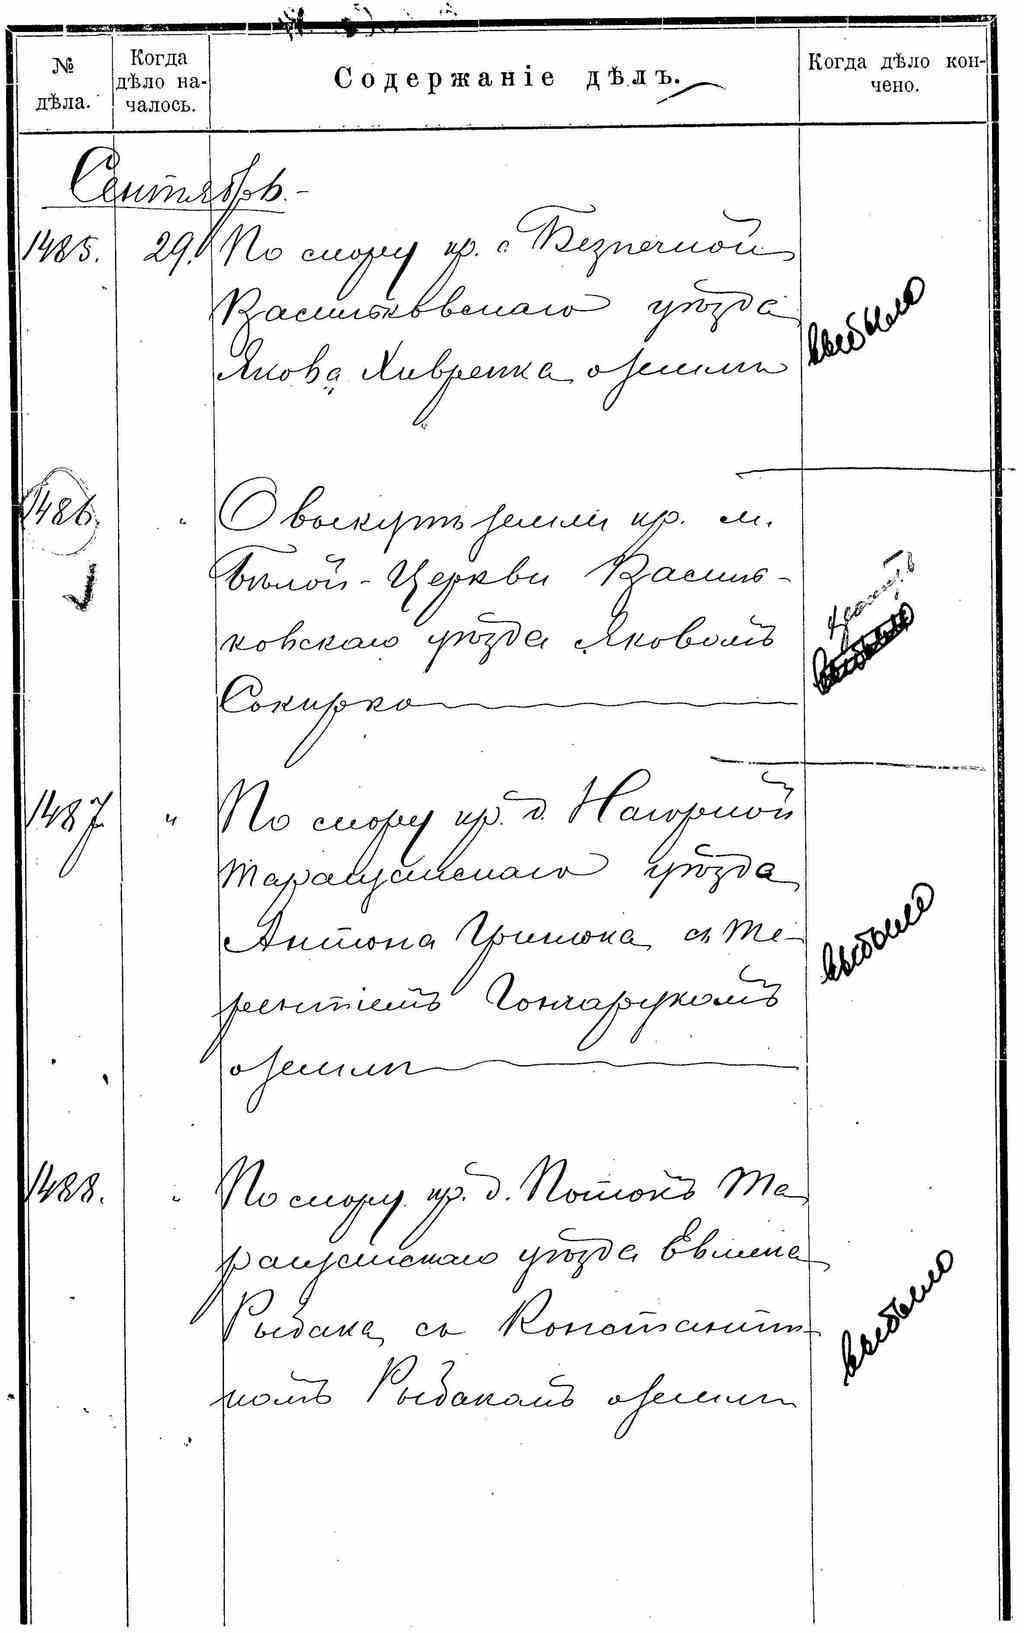 № дѣла.
Когда дѣло на-
чалось.
Содержаніе дѣлъ.
Когда дѣло кон-
чено.
Сентябрь.
1485. 29. По спору кр. с. Безпечной
Васильковскаго уѣзда
Якова Хивренка о землѣ
выбыло
1486. " О выкупѣ земли кр. м.
Бѣлой-Церкви Василь-
ковскаго уѣзда Яковомъ
Сокирко
выбыло
1487 " По спору кр. д. Нагорной
Таращанскаго уѣзда
Антона Гринюка съ Те-
рентіемъ Гончарукомъ
о землѣ
выбыло
1488. " По спору кр. д. Потокъ Та
ращанскаго уѣзда
Рыбака съ Константи-
номъ Рыбакомъ о землѣ
выбыло